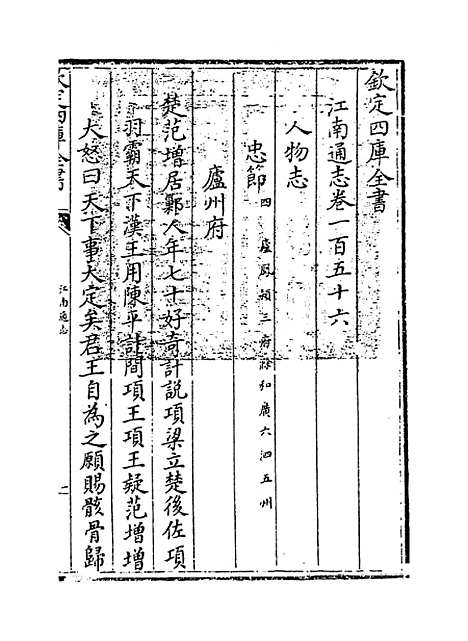 欽定四庫全書
江南通志卷一百五十六
人物志
忠節四 廬鳳潁三府滁和廣六泗五州
廬州府
楚范增居鄛人年七十好奇計說項梁立楚後佐項
羽霸天下漢王用陳平計間項王項王疑范增增
大怒曰天下事大定矣君王自為之願賜骸骨歸
欽定四庫全書
江南通志
一